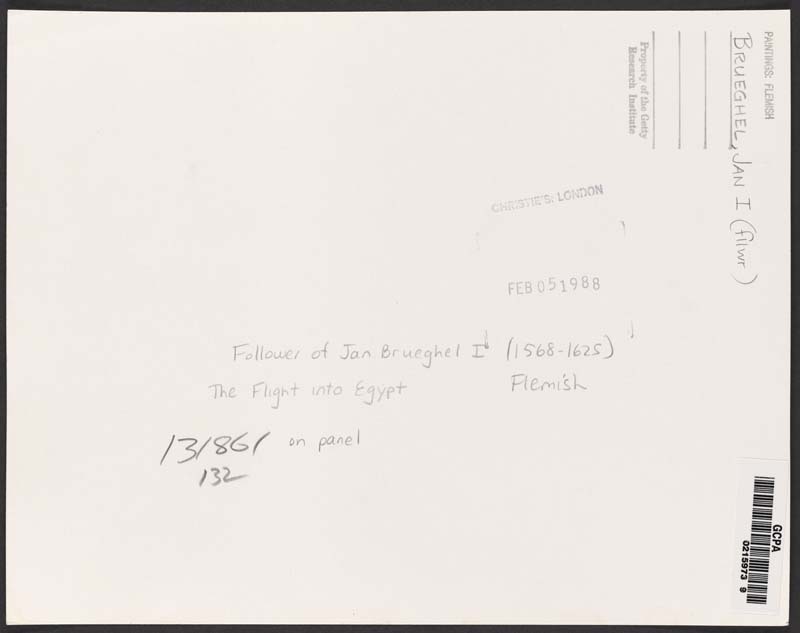 PAINTINGS: FLEMISH
BRUEGHEL, JAN I (fllwr)
Property of the Getty
Research Institute
CHRISTIE'S: LONDON
FEB 05 1988
Follower of Jan Brueghel I (1568-1625)
The Flight into Egypt Flemish
on panel
132
GCPA
0215973 9